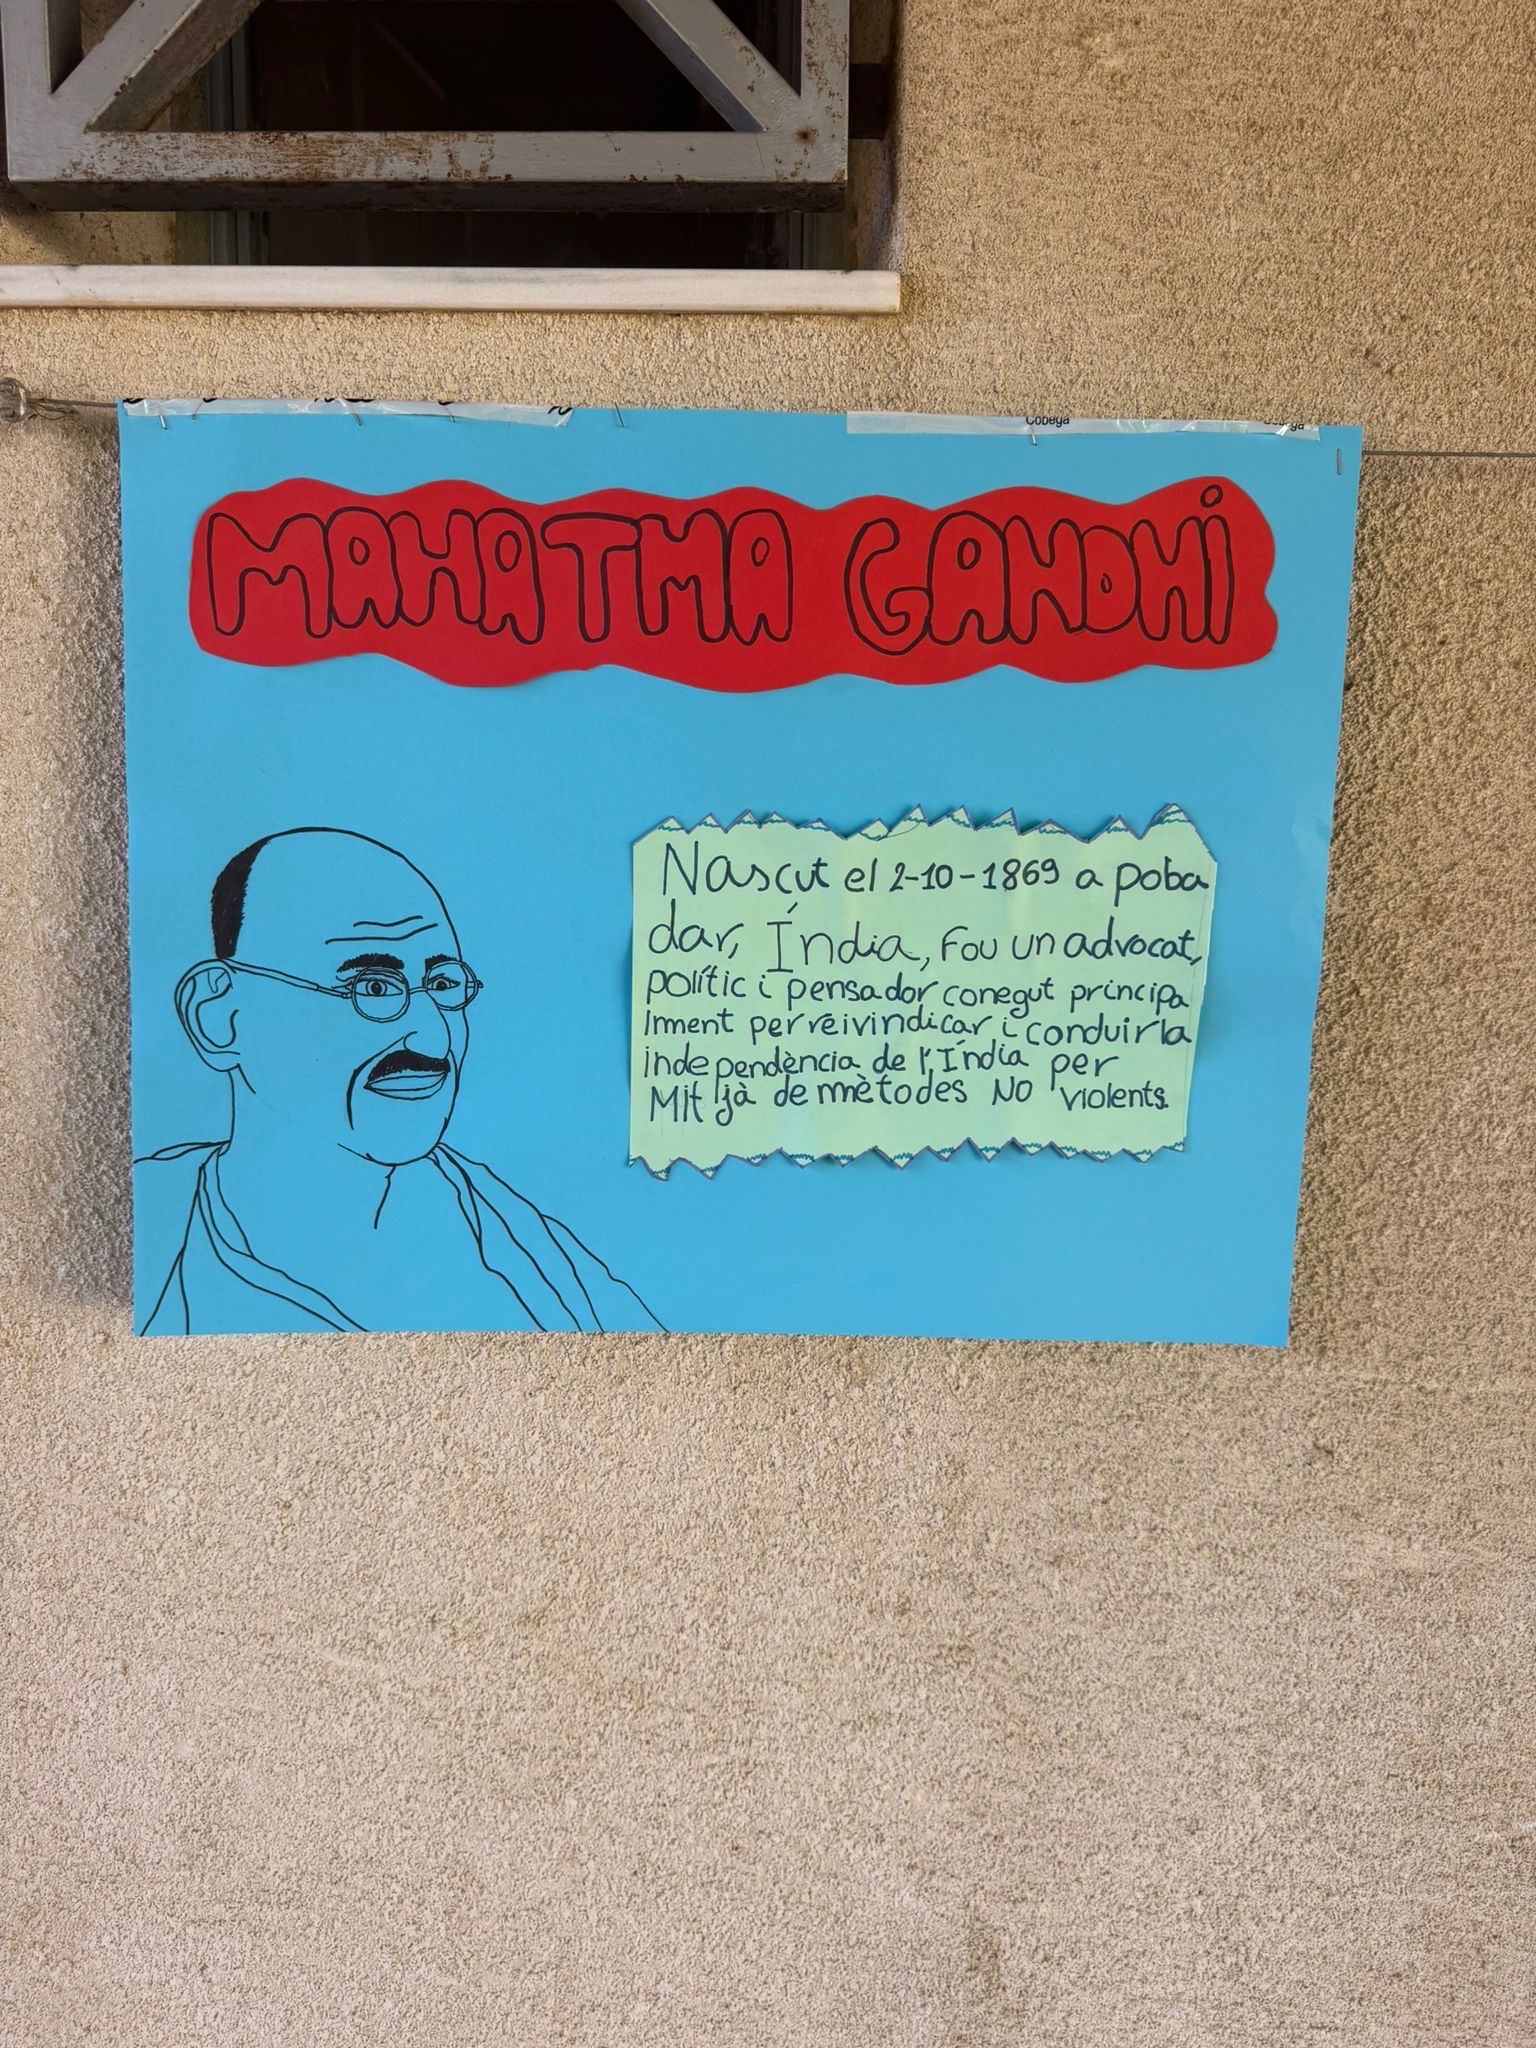 Cobega
MAHATMA GANDHI
Nascut el 2-10-1869 a poba
dar, Índia, Fou un advocat,
polític i pensador conegut principa
lment per reivindicar i conduir la
independència de l'Índia per
Mitjà de mètodes NO violents.